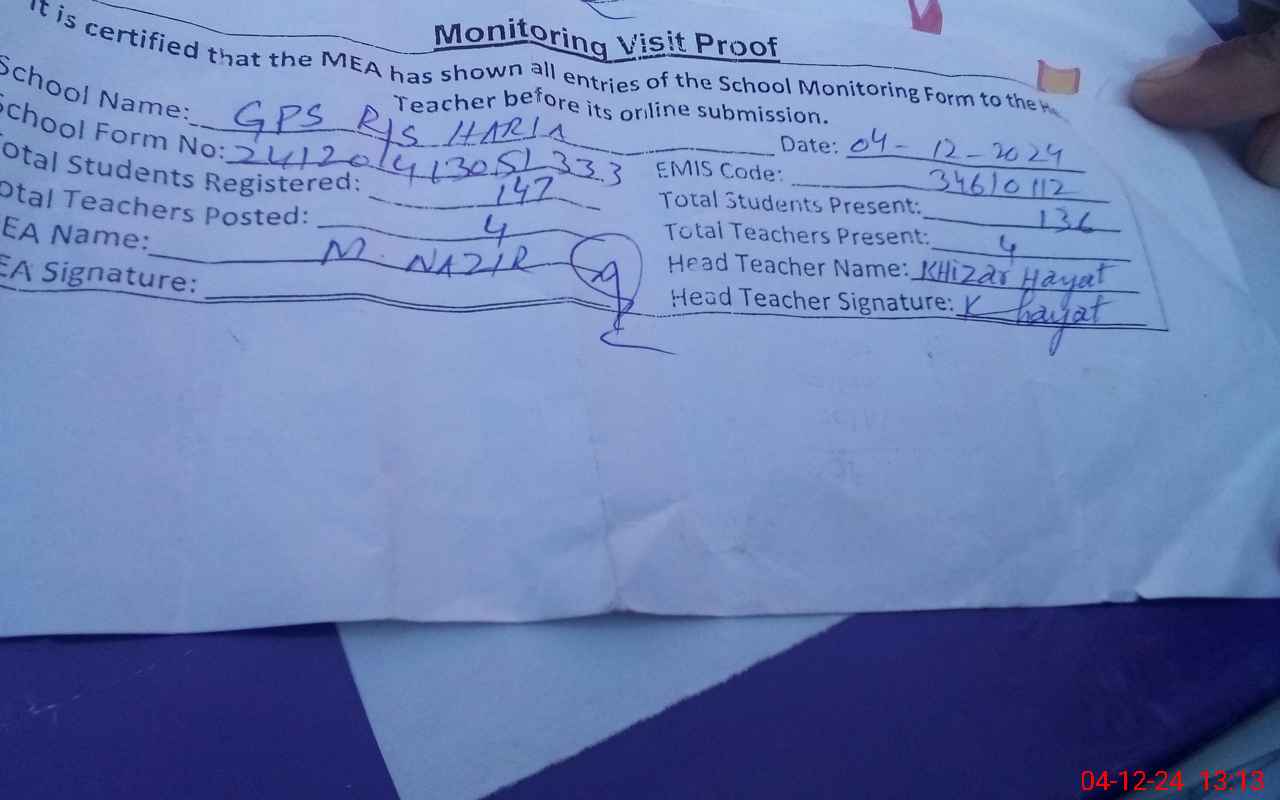 Monitoring Visit Proof
It is certified that the MEA has shown all entries of the School Monitoring Form to the
Teacher before its online submission.
School Name: GPS R/S HARIA Date: 04-12-2024
School Form No: 24120413051333 EMIS Code: 34610112
Total Students Registered: 147 Total Students Present: 136
otal Teachers Posted: 4 Total Teachers Present: 4
EA Name: M. NAZIR Head Teacher Name: KHizar Hayat
EA Signature: Head Teacher Signature: K hayat
04-12-24 13:13